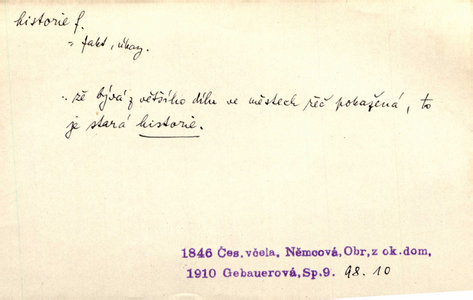 historie f.
= fakt, úkaz.
.. zě bývá z většího dílu ve městech řěč pokažená, to
je stará historie.
1846 Čes. včela. Němcová, Obr. z ok. dom.
1910 Gebauerová, Sp. 9. 98. 10